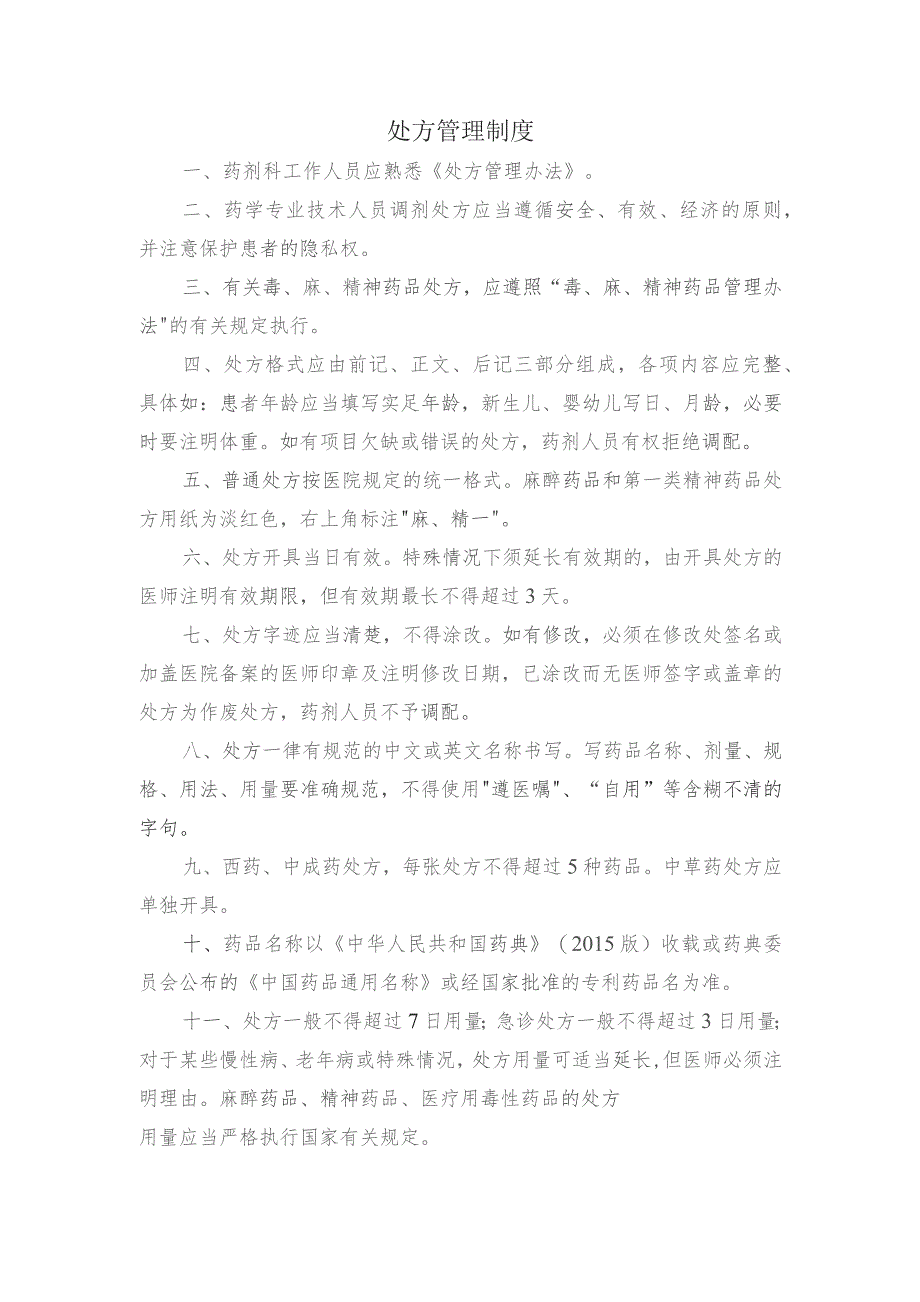 处方管理制度
一、药剂科工作人员应熟悉《处方管理办法》。
二、药学专业技术人员调剂处方应当遵循安全、有效、经济的原则,
并注意保护患者的隐私权。
三、有关毒、麻、精神药品处方，应遵照“毒、麻、精神药品管理办
法"的有关规定执行。
四、处方格式应由前记、正文、后记三部分组成，各项内容应完整、
具体如：患者年龄应当填写实足年龄，新生儿、婴幼儿写日、月龄，必要
时要注明体重。如有项目欠缺或错误的处方，药剂人员有权拒绝调配。
五、普通处方按医院规定的统一格式。麻醉药品和第一类精神药品处
方用纸为淡红色，右上角标注"麻、精一"。
六、处方开具当日有效。特殊情况下须延长有效期的，由开具处方的
医师注明有效期限，但有效期最长不得超过3天。
七、处方字迹应当清楚，不得涂改。如有修改，必须在修改处签名或
加盖医院备案的医师印章及注明修改日期，已涂改而无医师签字或盖章的
处方为作废处方，药剂人员不予调配。
八、处方一律有规范的中文或英文名称书写。写药品名称、剂量、规
格、用法、用量要准确规范，不得使用"遵医嘱"、“自用”等含糊不清的
字句。
九、西药、中成药处方，每张处方不得超过5种药品。中草药处方应
单独开具。
十、药品名称以《中华人民共和国药典》（2015版）收载或药典委
员会公布的《中国药品通用名称》或经国家批准的专利药品名为准。
十一、处方一般不得超过7日用量；急诊处方一般不得超过3日用量；
对于某些慢性病、老年病或特殊情况，处方用量可适当延长,但医师必须注
明理由。麻醉药品、精神药品、医疗用毒性药品的处方
用量应当严格执行国家有关规定。